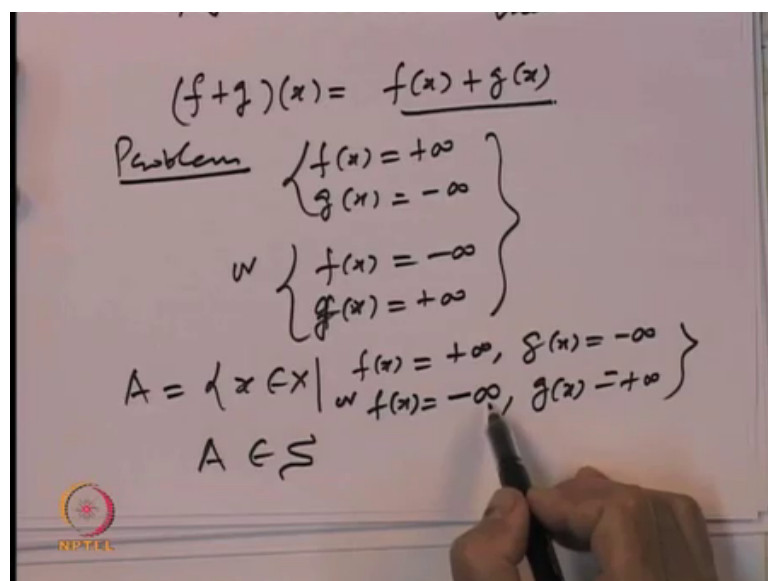 (f+g)(x) = f(x) + g(x)
Problem { f(x) = +∞
g(x) = -∞ }
or { f(x) = -∞
g(x) = +∞
A = { x ∈ X | f(x) = +∞, g(x) = -∞
or f(x) = -∞, g(x) = +∞ }
A ∈ S
NPTEL